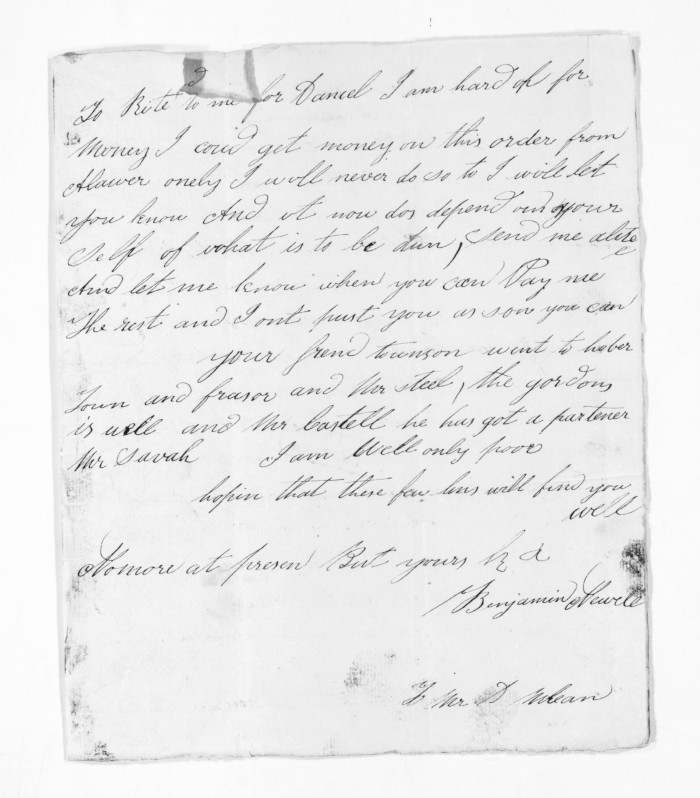 To Rite to me for Daniel I am hard of for
Money I coud get money on this order from
Alawer onely I woll never do so to I will let
you know And it now dos depend ond your
Self of what is to be dun, Send me alite
And let me know when you can Pay me
The rest and I ont pust you as soon you can
your frend townson went to hober
Town and frasor and Mr steel, the gordons
is well and Mr Castell he has got a partener
Mr Savah I am Well only poor
hopin that these few lins will find you
well
Nomore at presen But yours &c &
Benjamin Newell
To Mr D Mclean